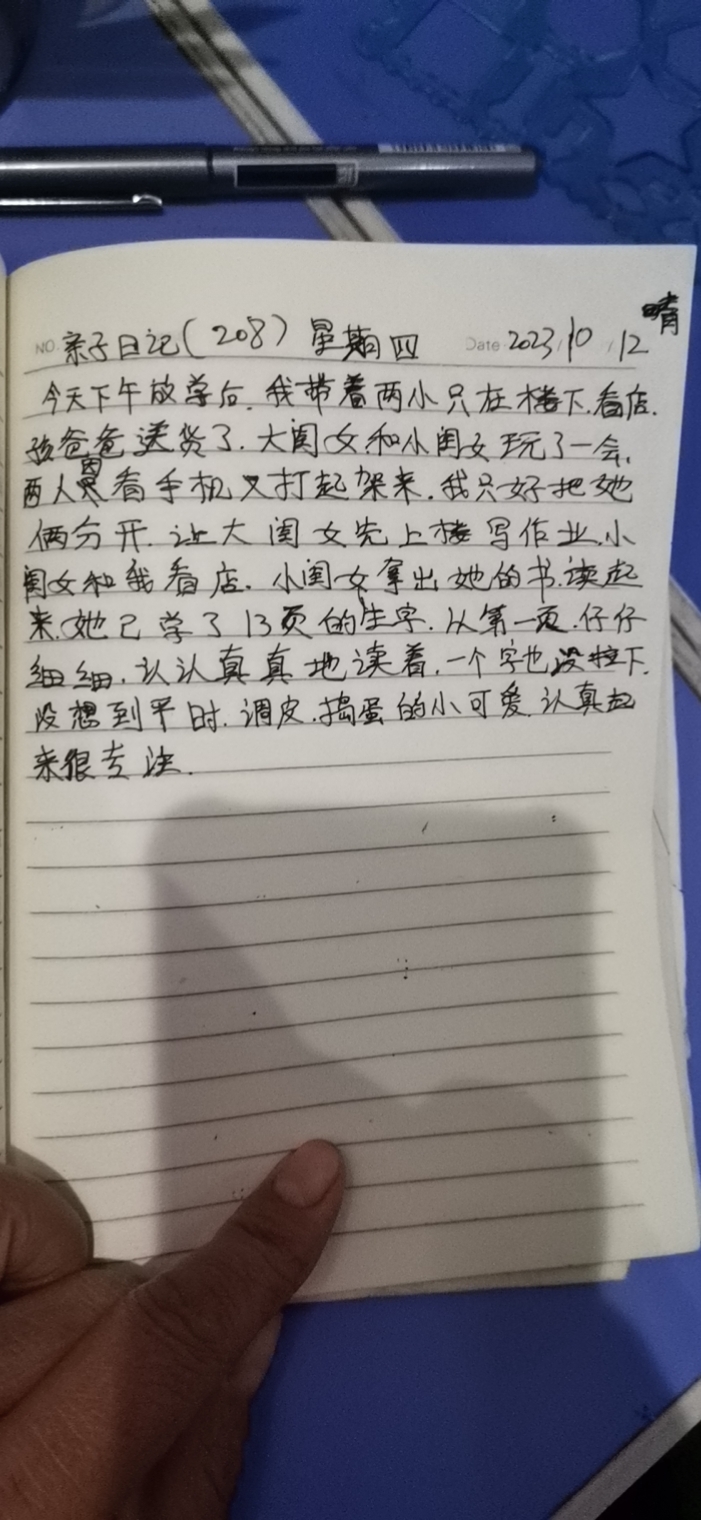 晴
NO. 亲子日记(208) 星期四 Date 2023/10/12
今天下午放学后.我带着两小只在楼下.看店.
孩爸爸送货了.大闺女和小闺女玩了一会,
因
两人看手机又打起架来.我只好把她
俩分开.让大闺女先上楼写作业.小
闺女和我看店.小闺女拿出她的书.读起
来.她已学了13页的生字.从第一页.仔仔
细细.认认真真地读着.一个字也没拉下.
没想到平时.调皮.捣蛋的小可爱.认真起
来很专注.